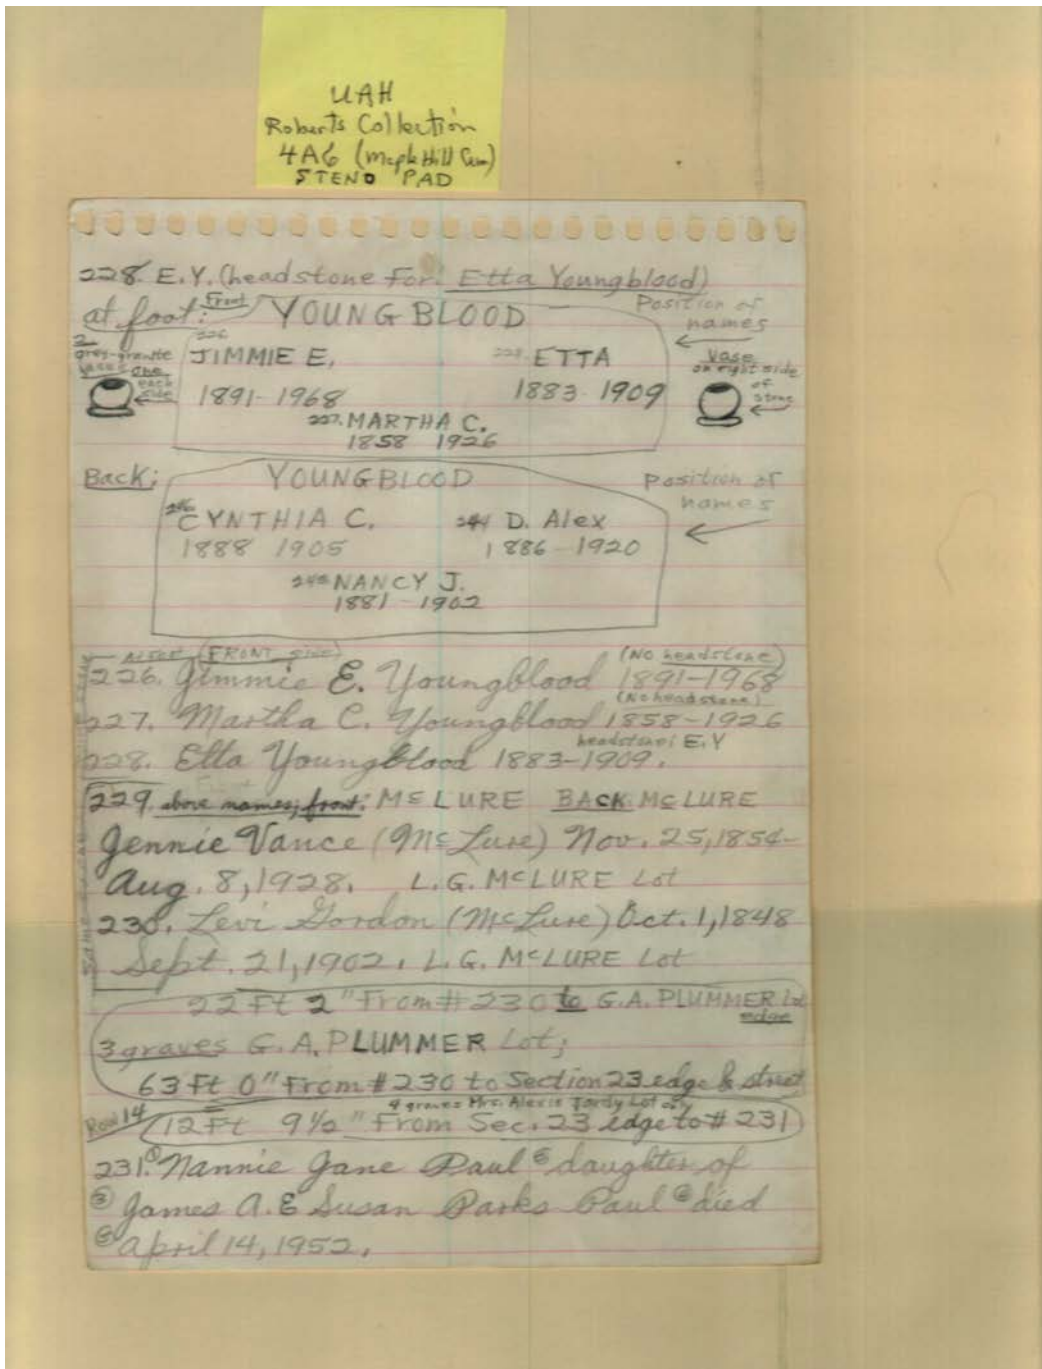 UAH
Roberts Collection
4A6 (Maple Hill Cem)
STENO PAD
228. E.Y. (headstone For: Etta Youngblood)
at foot: Front YOUNGBLOOD Position of
names
2 grey-granite vases one each side
226. JIMMIE E. 228. ETTA
Vase on right side of stone
1891-1968 1883-1909
227. MARTHA C.
1858 1926
Back: YOUNGBLOOD Position of
names
CYNTHIA C. 244 D. Alex
1888 1905 1886-1920
245 NANCY J.
1881-1902
At foot (FRONT side) (No headstone)
226. Jimmie E. Youngblood 1891-1968
(No headstone)
227. Martha C. Youngblood 1858-1926
headstone: E.Y
228. Etta Youngblood 1883-1909.
229. above names; front: McLURE BACK: McLURE
Jennie Vance (McLure) Nov. 25, 1854-
Aug. 8, 1928. L.G. McLURE Lot
230. Levi Gordon (McLure) Oct. 1, 1848
Sept. 21, 1902. L.G. McLURE Lot
22 Ft 2" From # 230 to G.A. PLUMMER Lot
edge
3 graves G.A. PLUMMER Lot;
63 Ft 0" From # 230 to Section 23 edge & street
4 graves Mrs. Alexis Tardy Lot
Row 14 12 Ft 9 1/2" From Sec. 23 edge to # 231
231. Nannie Jane Paul daughter of
③ James A. & Susan Parks Paul ④ died
⑤ April 14, 1952.